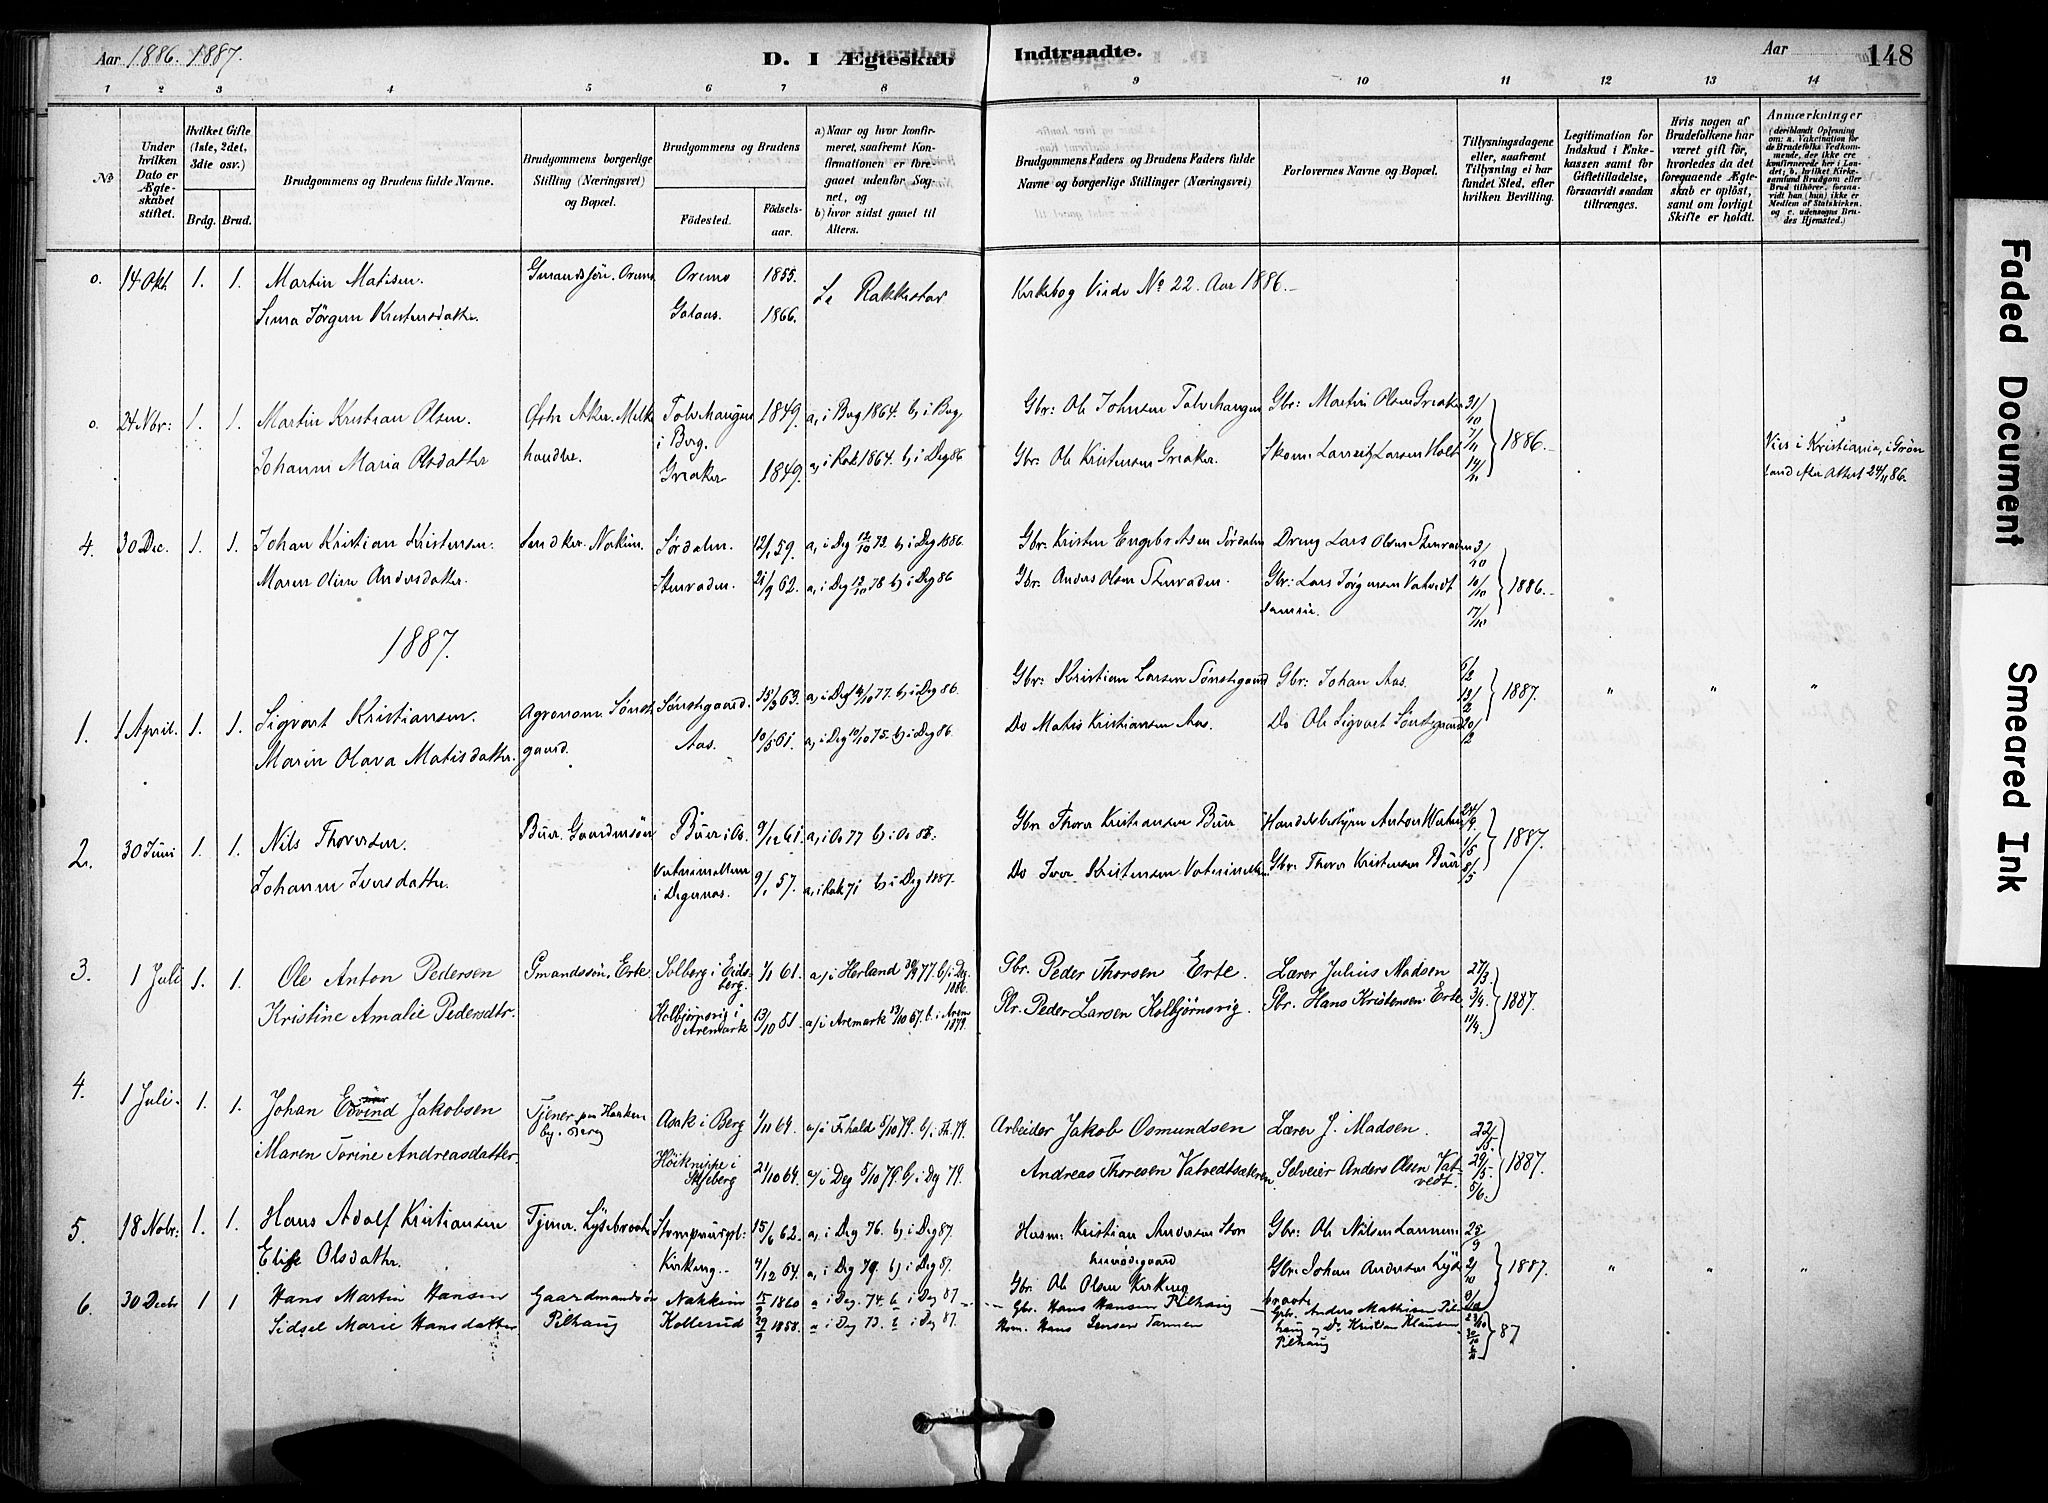 Aar 1886. 1887.
D. I Ægteskab Indtraadte.
Aar
148
1 2 3 4 5 6 7 8 9 10 11 12 13 14
№
Under hvilken Dato er Ægteskabet stiftet.
Hvilket Gifte (1ste, 2det, 3die osv.)
Brdg. Brud.
Brudgommens og Brudens fulde Navne.
Brudgommens borgerlige Stilling (Næringsvei) og Bopæl.
Brudgommens og Brudens
Fødested.
Fødselsaar.
a) Naar og hvor konfirmeret, saafremt Konfirmationen er foregaaet udenfor Sognet, og
b) hvor sidst gaaet til Alters.
Brudgommens Faders og Brudens Faders fulde Navne og borgerlige Stillinger (Næringsvei)
Forlovernes Navne og Bopæl.
Tillysningsdagene eller, saafremt Tillysning ei har fundet Sted, efter hvilken Bevilling.
Legitimation for Indskud i Enkekassen samt for Giftetilladelse, forsaavidt saadan tiltrænges.
Hvis nogen af Brudefolkene har været gift før, hvorledes da det foregaaende Ægteskab er opløst, samt om lovligt Skifte er holdt.
Anmærkninger
(deriblandt Oplysning om: a. Vakcination for Brudefolks Vedkommende, der ikke ere konfirmerede her i Landet; b. hvilket Kirkesamfund Brudgom eller Brud tilhører, forsaavidt han (hun) ikke er Medlem af Statskirken, og c. udensogns Brudes Hjemsted.)
0. 14 Okt. 1. 1. Martin Matisen. Oremo 1855. Rakkestad Kirkebog Vide No 22. Aar 1886.
Kristensdatter. 1866.
0. 24 Nbr: 1. 1. Martin Kristian Olsen. Østr Aker. Melkehandler. i Berg. 1849. a, i Berg 1864. b, i Berg Gbr: Ole Johnsen Gbr: Martin Olsen Greaker 31/10
Johanne Maria Olsdatter Greaker 1849. a, i Rak 1864. b, i Deg 86 Gbr: Ole Kristensen Greaker. Larsen Holt 7/11 14/11 1886.
Viet i Kristiania, i Grønland efter Attest 24/11 86.
4. 30 Dec. 1. 1. Johan Kristian Kristensen. Sørdalen. 12/1 59. a, i Deg 12/10 73. b, i Deg 1886. Gbr: Kristen Sørdalen Dreng Lars Olsen Stenraden 3/10
Maren Oline Andersdatter. Stenraden. 21/9 62. a, i Deg 13/10 78 b, i Deg 86 Gbr. Anders Olsen Stenraden. Gbr: Lars Jørgensen Vatvedt 10/10 17/10 1886.
1887.
1. 1 April. 1. 1. Sigvart Kristiansen. Agronom Sønstegaard. Sønstegaard. 15/3 63. a, i Deg 14/10 77. b, i Deg 86. Gbr: Kristian Larsen Sønstegaard Gbr: Johan Aas. 6/2
Maren Olava Matisdatter. Aas. 10/5 61. a, i Deg 10/10 75. b, i Deg 86. Do Matis Kristiansen Aas. Do Ole Sigvart Sønstegaard 13/2 20/2 1887. " " "
2. 30 Juni 1. 1. Nils Thoresen. Buer. Gaardmsøn Buer i Os. 9/12 61. a, i Os 77 b, i Os 86. Gbr. Thore Kristiansen Buer Handelsbestyrer Anton 24/4
Johanne Iversdatter. i Degernæs. 9/1 57. a, i Rak 71 b, i Deg 1887. Do Iver Kristensen Gbr: Thore Kristensen Buer 1/5 8/5 1887.
3. 1 Juli 1. 1. Ole Anton Pedersen Gmandssøn, Erte Solberg i Eidsberg. 1/1 61. a/ i Herland 30/9 77. b/ i Deg. 1886. Gbr. Peder Thorsen Erte. Lærer Julius Madsen 27/3
Kristine Amalie Pedersdtr. Kolbjørnsvig i Aremark 13/10 51. a/ i Aremark 13/10 67. b. i Arem 1879. Gbr. Peder Larsen Kolbjørnsvig Gbr. Hans Kristensen Erte 3/4. 11/4. 1887.
4. 1 Juli. 1. 1. Johan Edvind Jakobsen Tjener paa Hankenby i Berg Asak i Berg 1/11 64. a/ i Fr.hald 5/10 79. b/ i Fh. 79. Arbeider Jakob Osmundsen Lærer J. Madsen. 22/5
Maren Torine Andreasdatter. Høiknippe i Skjeberg 21/10 64. a/ i Deg 5/10 79. b/ i Deg 79. Andreas Thoresen Vatvedtsæteren. Selveier Anders Olsen Vatvedt. 29/5. 5/6. 1887.
5. 18 Nobr: 1. 1. Hans Adolf Kristiansen Tjener. Lysebraate 15/6 62. a, i Deg 76. b, i Deg 87. Husm: Kristian Andersen Gbr: Ole Nilsen 25/9
Elise Olsdatter. Kirkeng. 4/12 64. a, i Deg 79. b, i Deg 87. Gbr. Ole Olsen Kirkeng Gbr: Johan Andersen Lysebraate 2/10 9/10 1887. " " "
6. 30 Decbr 1 1 Hans Martin Hansen Gaardmandssøn Pilhaug Nakkim 1860 a i Deg. 74. b i Deg 87 Gbr. Hans Hansen Pilhaug Gbr. Anders Mathisen Pilhaug og Do Kristian Klausen Pilhaug 23/10
Sidsel Marie Hansdatter Kollerud 29/9 1858. a i Deg 73. b i Deg 87. Hom. Hans Jensen Tarmen 30/10 6/11 87
Faded Document
Smeared Ink